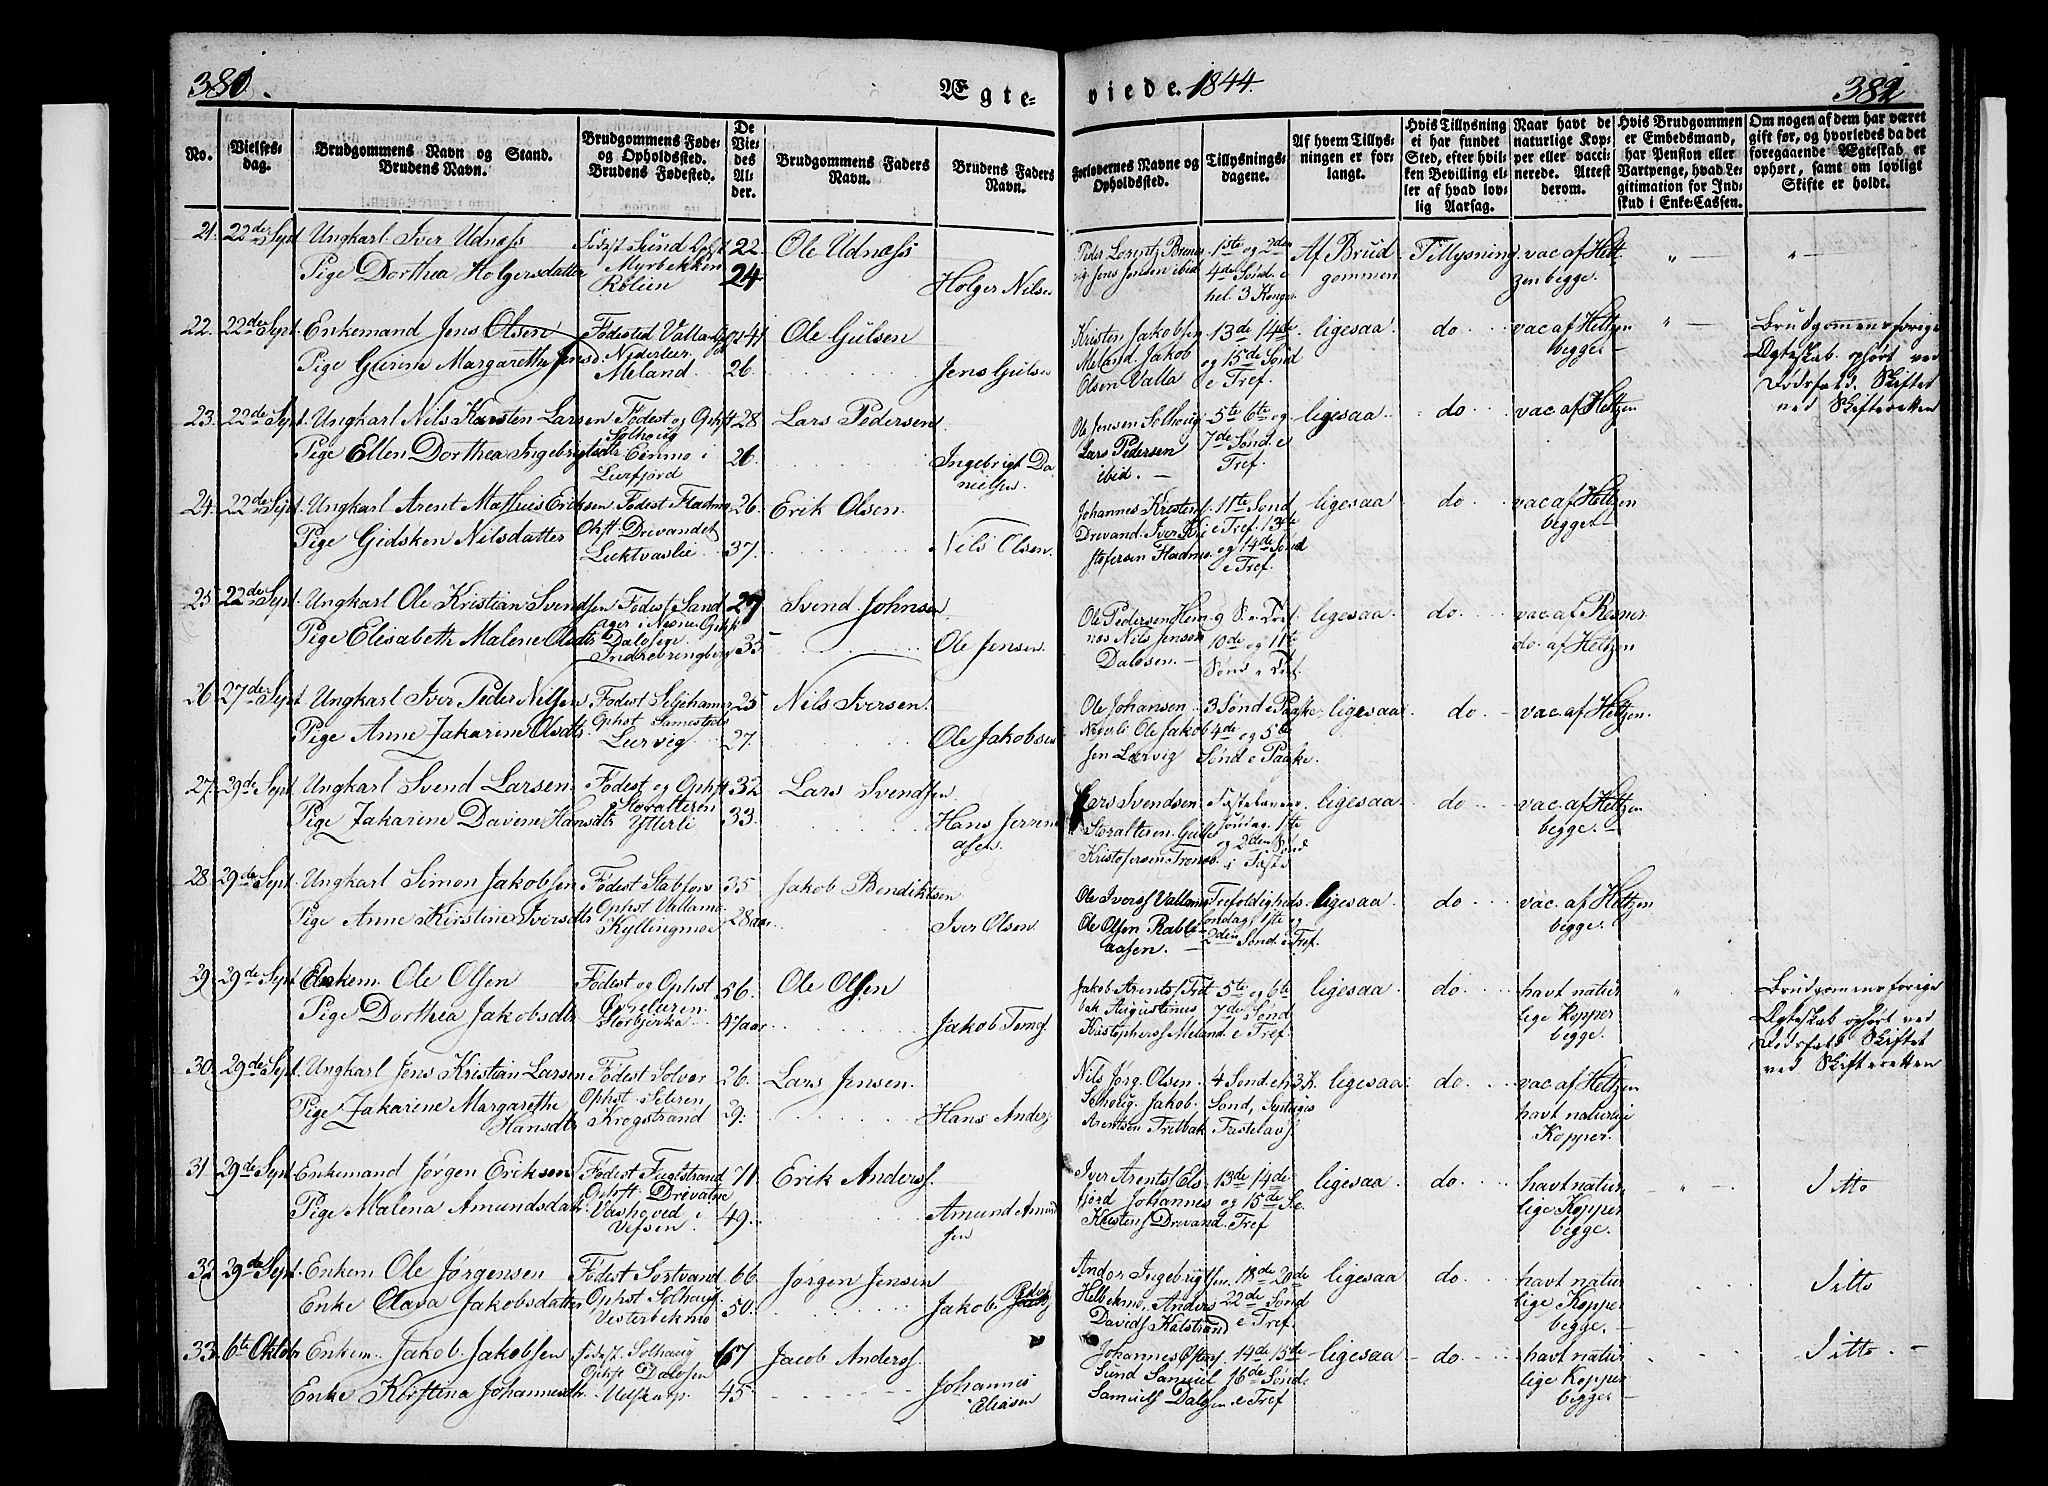 381.
Ægte-
viede. 1844.
382
No.
Vielses-
dag.
Brudgommens Navn og Stand.
Brudens Navn.
Brudgommens Føde-
og Opholdssted.
Brudens Fødested.
De
Vie-
des
Al-
der.
Brudgommens Faders
Navn.
Brudens Faders
Navn.
Forlovernes Navne og
Opholdssted.
Tillysnings-
dagene.
Af hvem Tillys-
ningen er for-
langt.
Hvis Tillysning
ei har fundet
Sted, efter hvil-
ken Bevilling el-
ler af hvad lov-
lig Aarsag.
Naar havt de
naturlige Kop-
per eller vacci-
nerede. Attest
derom.
Hvis Brudgommen
er Embedsmand,
har Pension eller
Vartpenge, hvad Le-
gitimation for Ind-
skud i Enke-Cassen.
Om nogen af dem har været
gift før, og hvorledes da det
foregaaende Ægteskab er
ophørt, samt om lovligt
Skifte er holdt.
21. 22de Sept Ungkarl Iver Udnæss
Pige Dorthea Holgersdatter
Myrbekken
Rølien
22
24
Ole Udnæss
Holger Nilse
Jens Jensen ibid
1ste og 2den
4de Sønd. e
hel. 3 Konger
Af Brud
gommen
Tillysning
vac af Helt
zen begge.
22. 22de Sept. Enkemand Jens Olsen
Pige Gurine Margarethe Jensd
Fødested Valla
Nederleer
Meland
41
26.
Ole Gulsen
Jens Gulse
Kristen Jakobsen
Meland Jakob
Olsen Valla
13de 14de
og 15de Sønd
e Tref.
ligesaa
do
vac af Heltzen
begge
Brudgomens forige
Ægteskab ophørt ved
Dødsfald. Skiftet
ved Skifteretten
23. 22de Sept. Ungkarl Nils Karsten Larsen
Pige Ellen Dorthea Ingebrigtsdtr
Fødest og Ophst
Solhoug
Einmo i
Leirfjord
28
26.
Lars Pedersen
Ingebrigt Da
nielsen
Ole Jensen Solhoug
Lars Pedersen
ibid.
5te 6te og
7de Sønd. e
Tref.
ligesaa
do
vac af Heltzen
24. 22de Sept. Ungkarl Arent Mathias Eriksen
Pige Gidsken Nilsdatter
Fødest Fladmo
Ophst. Drevandet
Luktvaslie
26.
37.
Erik Olsen.
Nils Olsen.
Johannes Kristens.
Drevand. Iver Kri
stofersen Fladmo
11te Sønd
e Tref. 13de
og 14de Sønd
e Tref.
ligesaa
do
vac af Heltzen
begge
25 22de Sept. Ungkarl Ole Kristian Svendsen
Pige Elisabeth Malene Olsdtr
Fødest Sand
ager i Nesne Ophst
Dalosen
Indrebringberg
27
35
Svend Johnsen
Ole Jensen.
Ole Pedersen Hem
nes Nils Jensen
Dalosen.
9 S. e Tref.
10de og 11te
Sønd e Tref.
ligesaa
do.
vac. af
do. af Heltzen
26 27de Sept Ungkarl Iver Peder Nilsen
Pige Anne Jakarine Olsdtr
Fødest
Ophst
Lervig
25
27.
Nils Iversen.
Ole Jakobsen
Ole Johansen
Ole Jakob
sen Lervig
3 Sønd e Paaske
4de og 5te
Sønd e Paaske.
ligesaa
do.
vac. af Heltzen.
27. 29de Sept Ungkarl Svend Larsen
Pige Jakarine Davine Hansdtr
Fødest og Ophst
Storalteren
Ytterli
32
33.
Lars Svendsen
Hans
Lars Svendsen
Storalteren.
Kristofersen
Fastelavens
søndag. 1ste
og 2den Sønd
i Faste
ligesaa
do
vac. af Heltzen
begge.
28 29de Sept Ungkarl Simon Jakobsen
Pige Anne Kirstine Iversdtr
Fødest Stabfors
Ophst Vallamo
Kyllingmoe
35
28 aar
Jakob Bendiktsen
Iver Olsen.
Ole Iverss Vallamo
Ole Olsen Rabli
aasen.
Trefoldigheds
søndag 1ste og
2den Sønd. e Tref.
ligesaa
do
vac. af Heltzen
begge.
29 29de Sept Enkem. Ole Olsen
Pige Dorthea Jakobsdtr
Fødest og Ophst
Storbjerka
56.
47 aar
Ole Olsen
Jakob
Jakob Arents
Augustinus
Kristophers Meland.
5te og 6te
7de Sønd
e Tref.
ligesaa
do.
havt natur
lige Kopper
begge.
Brudgomens forige
Ægteskab ophørt ved
Dødsfald Skiftet
ved Skifteretten
30. 29de Sept. Ungkarl Jens Kristian Larsen
Pige Jakarine Margarethe
Hansdtr
Fødest
Ophst
Krogstrand
26.
39.
Lars Jensen.
Hans Anders
Nils Jørg. Olsen.
Jakob
Arentsen
4 Sønd
Sønd,
Fastelavs.
ligesaa
do
vac af Heltzen
havt naturlige
Kopper.
31. 29de Sept. Enkemand Jørgen Eriksen
Pige Malena Amundsdatr
Fødest Fuglstrand
Ophst Drevatne
Vashoved i
Vefsen.
71
49.
Erik Anderss.
Amund Amund
sen
Iver Arents Els
fjord Johannes
Kristens Drevand.
13de 14de
og 15de S. e.
Tref
ligesaa
do.
havt natur
lige Kopper
begge.
Ditto
32 29de Sept. Enkem Ole Jørgensen
Enke Olava Jakobsdatter
Fødest Sortvand
Ophst Solhaug.
Vesterbekmo
66
50.
Jørgen Jensen
Jakob Peders
Andor Ingebrigtsen.
Anders
Davids Kalstrand
18de 20de
22de Sønd
e Tref.
ligesaa
do.
havt natur
lige Kopper
begge.
Ditto
33. 6te Oktob Enkem. Jakob Jakobsen
Enke Kirstina Johannesdtr
Fødest Solhaug
Ophst Dalosen
67
45
Jacob Anderss.
Johannes
Eliasen
Johannes
Sund Samuel
Samuels Dalosen
14de 15de
16de Sønd
e Tref
ligesaa
do.
havt natur
lige Kopper
begge
Ditto.